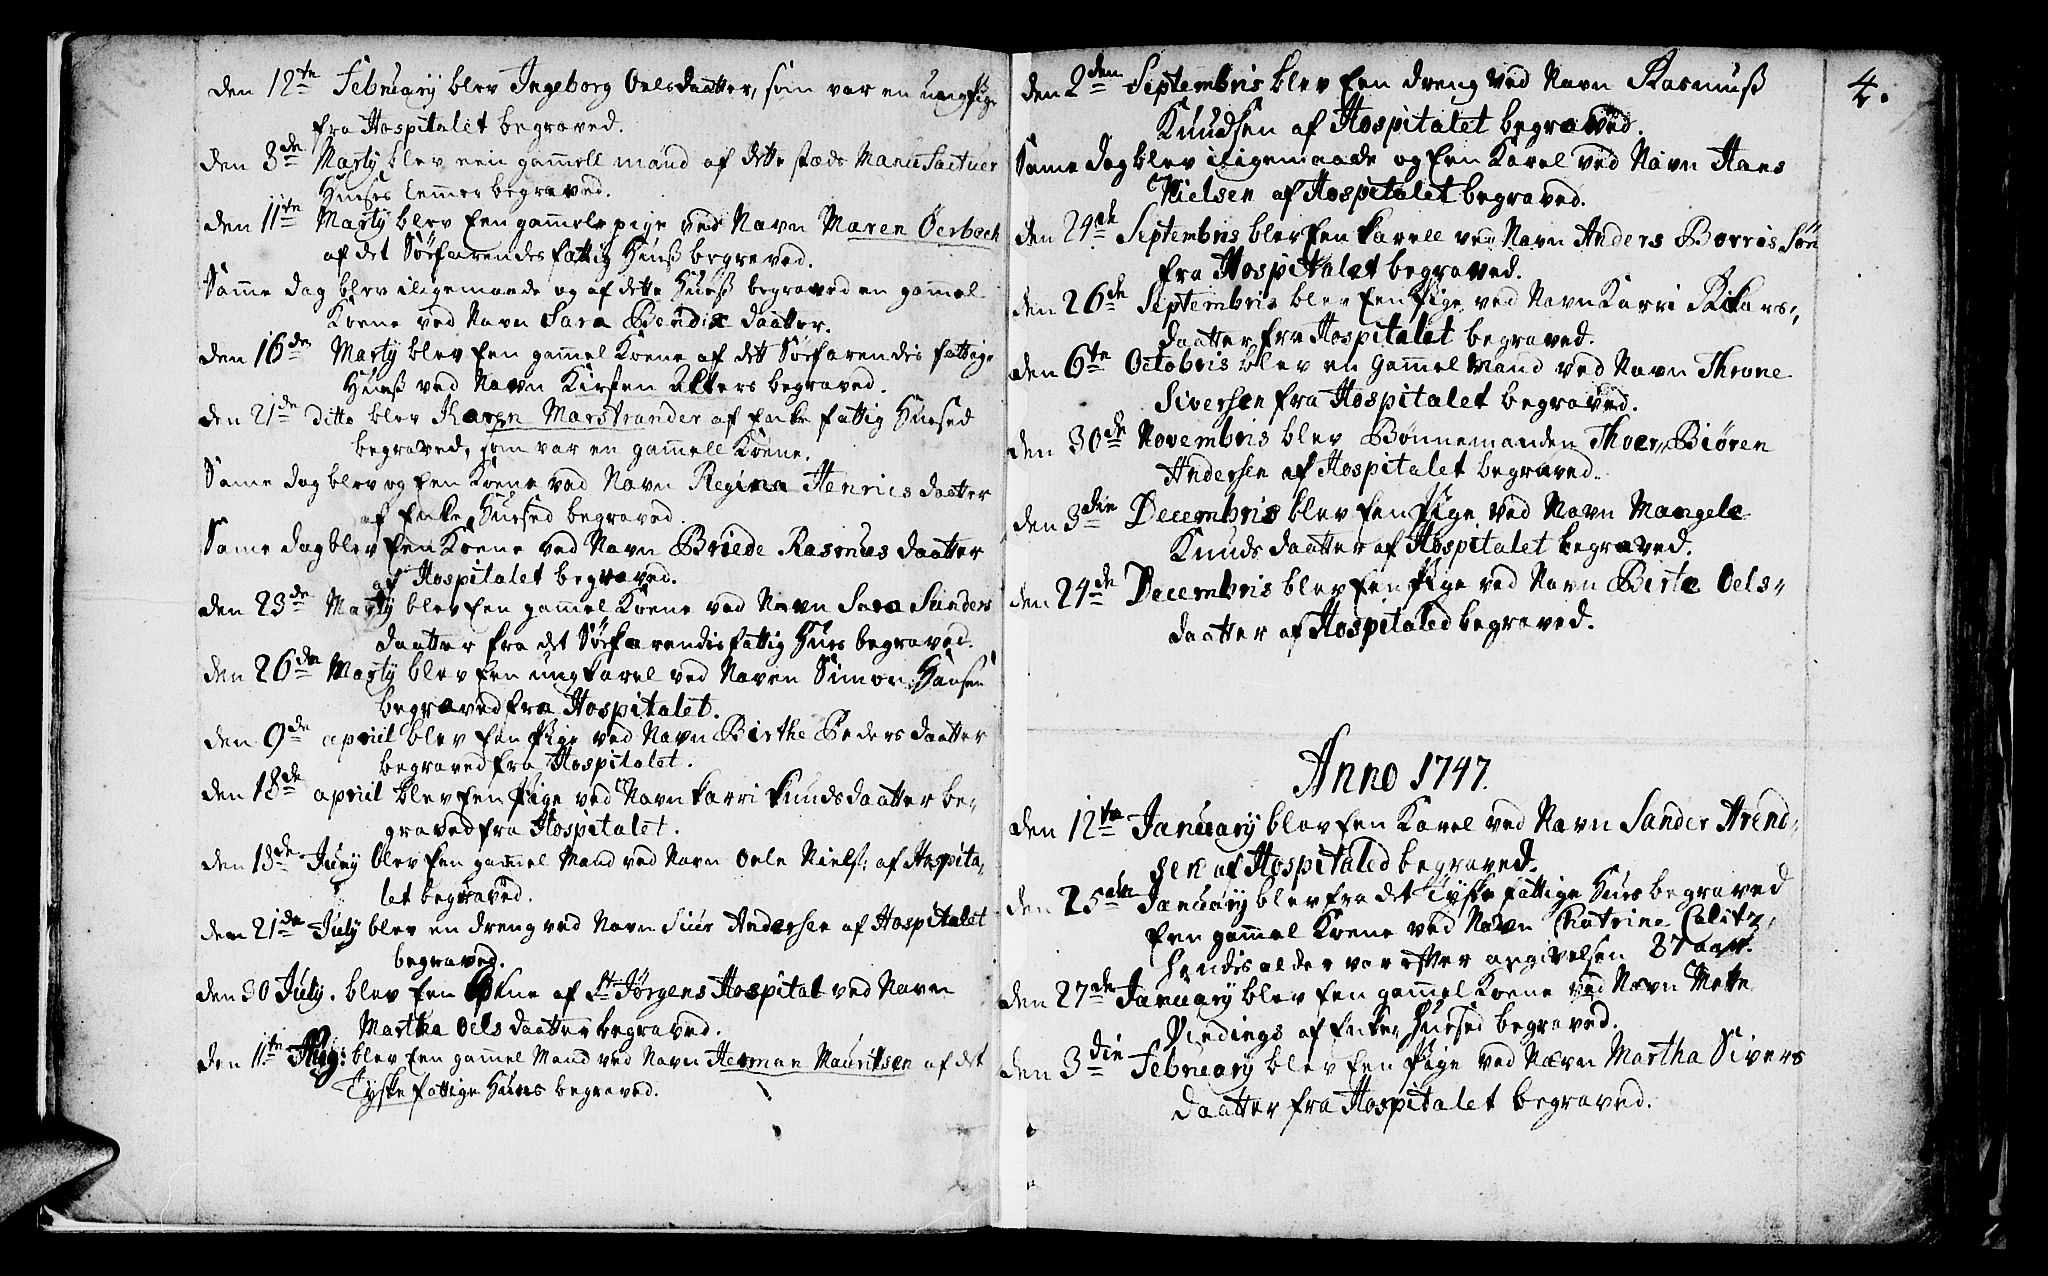 den 12te Februarÿ blev Ingeborg Oelsdaatter, som var en ung Pige
fra Hospitalet begraved.
den 3de Martÿ blev een gam̄ell mand af dette stæds Manufactuer
Huuses Lemmer begraved.
den 11te Martÿ blev Een gam̄ele pige ved Navn Maren Oerbech
af det Söefaarendes fattig Huuß begraved.
Sam̄e dag blev iligemaade og af dette Huuß begraved en gam̄el
Koene ved Navn Sara Bendix daatter.
den 16de Martÿ blev Een gam̄el Koene af dett Söefarendis fattige
Huuß ved Navn Kirsten Alters begraved.
den 21de ditto blev Karen Marstrander af Enke fattig Huused
begraved, som var en gam̄ell Koene.
Sam̄e dag blev og Een Koene ved Navn Regina Henrics daatter
af Enke Huused begraved.
Sam̄e dag blev Een Koene ved Navn Briede Rasmus daatter
af Hospitalet begraved.
den 23de Martÿ blev Een gam̄el Koene ved Navn Sara Sanders
daatter fra det Söefarendis fattig Huus begraved.
den 26de Martÿ blev Een ung karel ved Naven Simon Hansen
begraved fra Hospitalet.
den 9de april blev Een Pige ved Navn Birthe Peders daatter
begraved fra Hospitalet.
den 18de april blev Een Pige ved Navn karri knuds daatter be-
graved fra Hospitalet.
den 18de Junÿ blev Een gam̄el Mand ved Navn Oele Niels: af Hospita-
let begraved.
den 21de Julÿ blev en dreng ved Navn Siur Andersen af Hospitalet
begraved.
den 30 Julÿ. blev Een Kone af St Jörgens Hospital ved Navn
Martha Oels daatter begraved.
den 11te Aug: blev Een gam̄el Mand ved Navn Herman Mauritsen af det
Tyske fattige Huus begraved.
4.
den 2den Septembris blev Een dreng ved Navn Rasmuß
Knudsen af Hospitalet begraved.
Sam̄e dag blev iligemaade og Een Karel ved Navn Hans
Nielsen af Hospitalet begraved.
den 24de Septembris blev Een karell ved Navn Anders Borris Sön
fra Hospitalet begraved.
den 26de Septembris blev Een Pige ved Navn Karri Rikars-
daatter fra Hospitalet begraved.
den 6te Octobris blev en Gam̄el Mand ved Navn Throne
Siversen fra Hospitalet begraved.
den 30de Novembris blev Bønnemanden Thoer-Biøren
Andersen af Hospitalet begraved.
den 3die Decembris blev Een Pige ved Navn Mangele
Knuds daatter af Hospitalet begraved.
den 24de Decembris blev Een Pige ved Navn Birte Oels-
daatter af Hospitaled begraved.
Anno 1747.
den 12te Januarÿ blev Een Karel ved Navn Sander Arend-
sen af Hospitaled begraved.
den 25de Januarÿ blev fra det Tyske fattige Huus begraved
Een gam̄el Koene ved Navn Chatrine Calitz,
hendis alder var efter angivelsen 87 aar.
den 27de Januarÿ blev Een gam̄el Koene ved Navn Mette
Vindings af Enke Huused begraved.
den 3die Februarÿ blev Een Pige ved Navn Martha Sivers
daatter fra Hospitalet begraved.